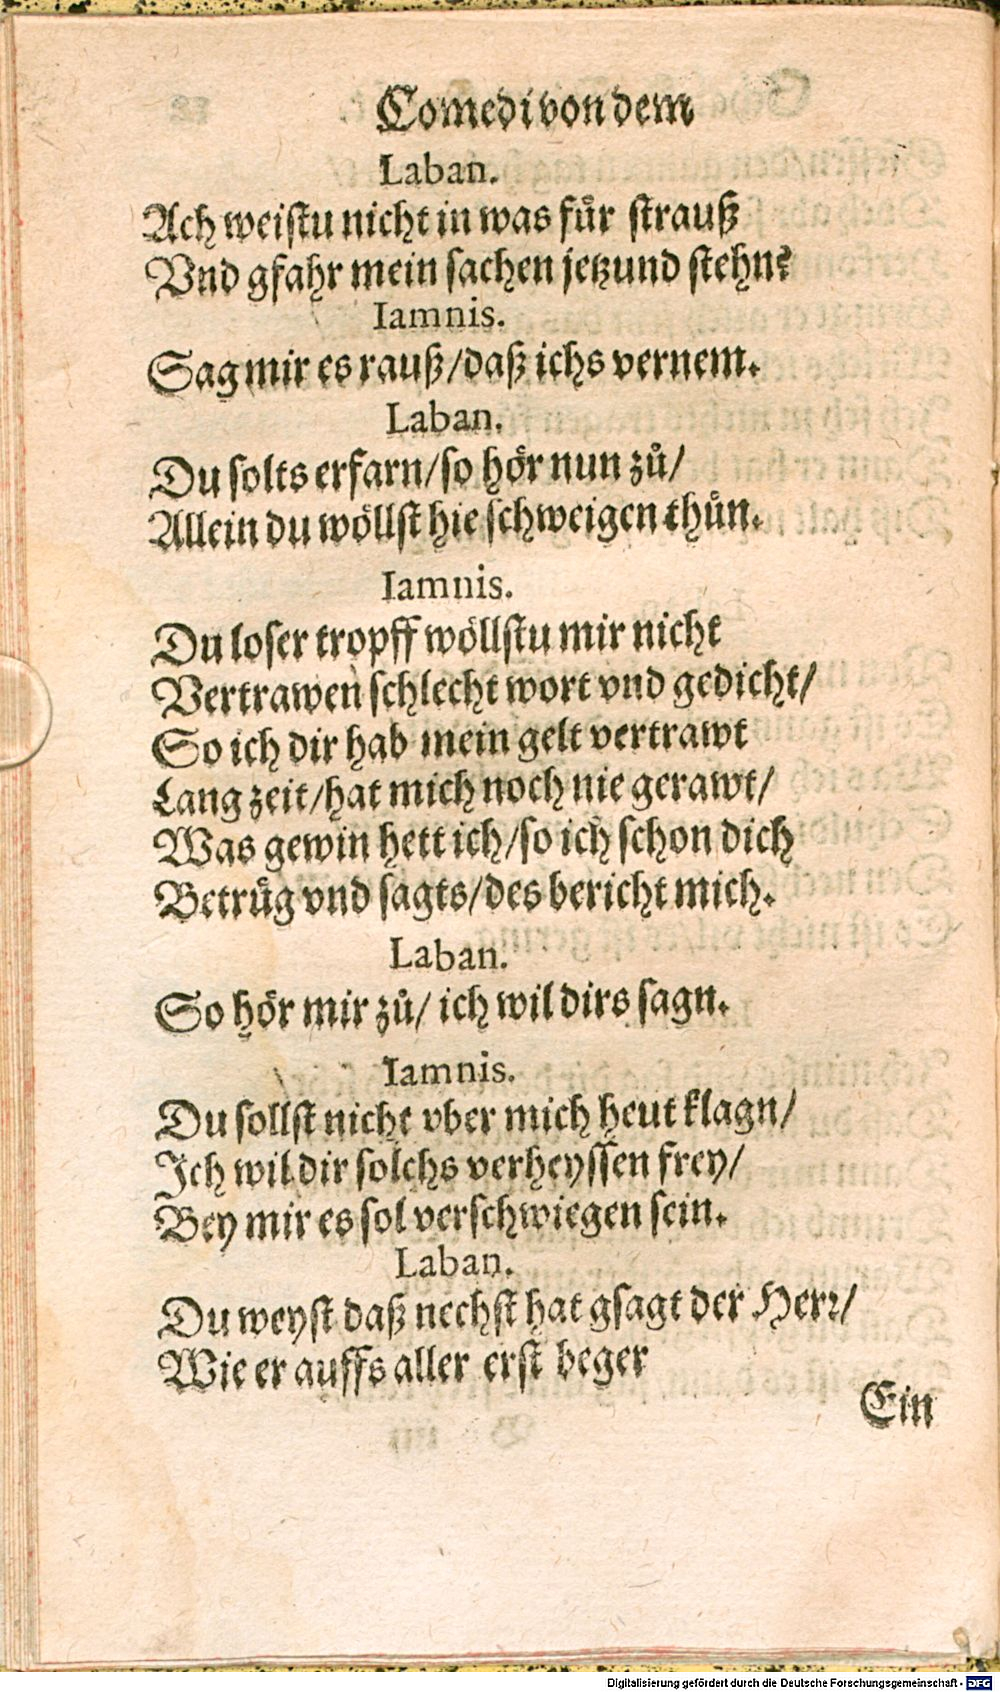 Comedi von dem
Laban.
Ach weistu nicht in was fuͤr strauß
Vnd gfahr mein sachen jetzund stehn?
Iamnis.
Sag mir es rauß/ daß ichs vernem.
Laban.
Du solts erfarn/ so hoͤr nun zuͦ/
Allein du woͤllst hie schweigen thuͤn.
Iamnis.
Du loser tropff woͤllstu mir nicht
Vertrawen schlecht wort vnd gedicht/
So ich dir hab mein gelt vertrawt
Lang zeit/ hat mich noch nie gerawt/
Was gewin hett ich/ so ich schon dich
Betruͤg vnd sagts/ des bericht mich.
Laban.
So hoͤr mir zuͦ/ ich wil dirs sagn.
Iamnis.
Du sollst nicht vber mich heut klagn/
Ich wil dir solchs verheyssen frey/
Bey mir es sol verschwiegen sein.
Laban.
Du weyst daß nechst hat gsagt der Herr/
Wie er auffs aller erst beger
Ein
Digitalisierung gefördert durch die Deutsche Forschungsgemeinschaft - DFG